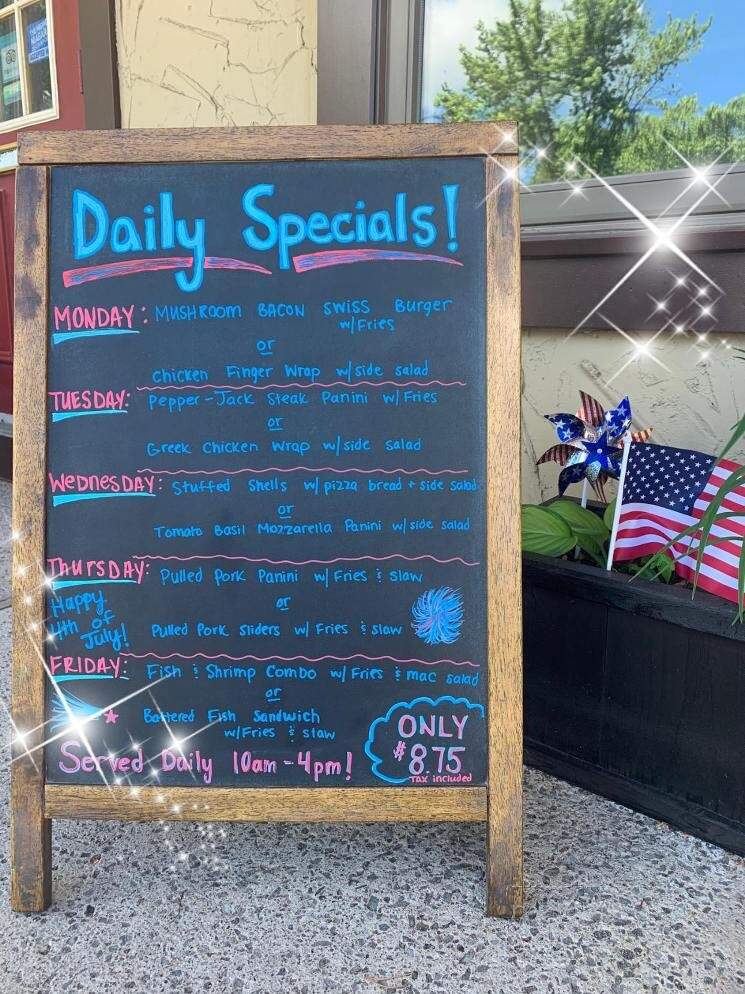 Daily Specials!
MONDAY: MUSHROOM BACON SWISS Burger
w/Fries
or
Chicken Finger Wrap w/side salad
TUESDAY: Pepper-Jack Steak Panini w/Fries
or
Greek Chicken Wrap w/side salad
WEDNESDAY: Stuffed Shells w/pizza bread + side salad
or
Tomato Basil Mozzarella Panini w/side salad
THURSDAY: Pulled Pork Panini w/ Fries & slaw
or
Happy
4th of
July!
Pulled Pork sliders w/ Fries & slaw
FRIDAY: Fish & Shrimp Combo w/ Fries & mac salad
or
Battered Fish Sandwich
w/Fries & slaw
ONLY
$8.75
Tax included
Served Daily 10am-4pm!